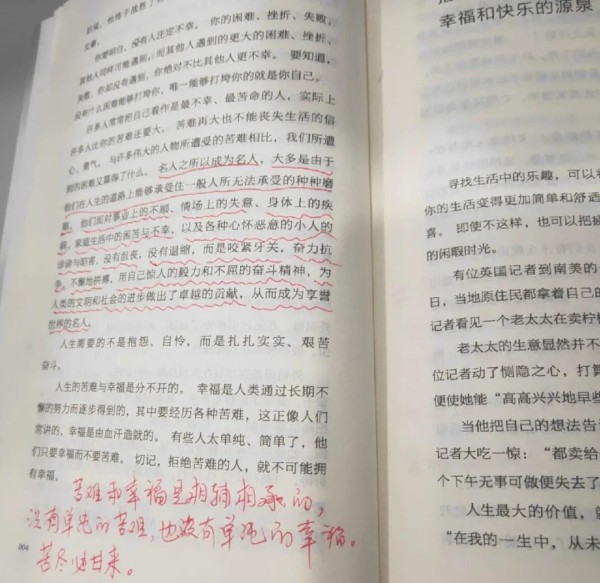 文豪。
你要明白，没有人注定不幸。你的困难、挫折、失败，
其他人同样可能遇到，而其他人遇到的更大的困难、挫折、
失败，你却没有遇到，你绝对不比其他人更不幸。要知道，
没有什么困难能够打垮你，唯一能够打垮你的就是你自己。
许多人常常把自己看作是最不幸、最苦命的人，实际上
许多人比你的苦难还要大。苦难再大也不能丧失生活的信
心、勇气。与许多伟大的人物所遭受的苦难相比，我们所遭
到的困难又算得了什么。名人之所以成为名人，大多是由于
他们在人生的道路上能够承受住一般人所无法承受的种种磨
难。他们面对事业上的不顺、情场上的失意、身体上的疾
病、家庭生活中的困苦与不幸，以及各种心怀恶意的小人的
诽谤与陷害，没有沮丧，没有退缩，而是咬紧牙关，奋力抗
争，不懈地拼搏，用自己惊人的毅力和不屈的奋斗精神，为
人类的文明和社会的进步做出了卓越的贡献，从而成为享誉
世界的名人。
人生需要的不是抱怨、自怜，而是扎扎实实、艰苦
奋斗。
人生的苦难与幸福是分不开的。幸福是人类通过长期不
懈的努力而逐步得到的，其中要经历各种苦难，这正像人们
常讲的，幸福是由血汗造就的。有些人太单纯、简单了，他
们只要幸福而不要苦难。切记，拒绝苦难的人，就不可能拥
有幸福。
苦难和幸福是相辅相承的，
没有单纯的苦难，也没有单纯的幸福。
苦尽甘来。
004
幸福和快乐的源泉
寻找生活中的乐趣，可以
你的生活变得更加简单和舒适
喜。即使不这样，也可以把
的闲暇时光。
有位英国记者到南美的
日，当地原住民都拿着自己的
记者看见一个老太太在卖柠
老太太的生意显然并不
位记者动了恻隐之心，打算
便使她能“高高兴兴地早些
当他把自己的想法告
记者大吃一惊：“都卖给
个下午无事可做便失去了
人生最大的价值，
“在我的一生中，从未